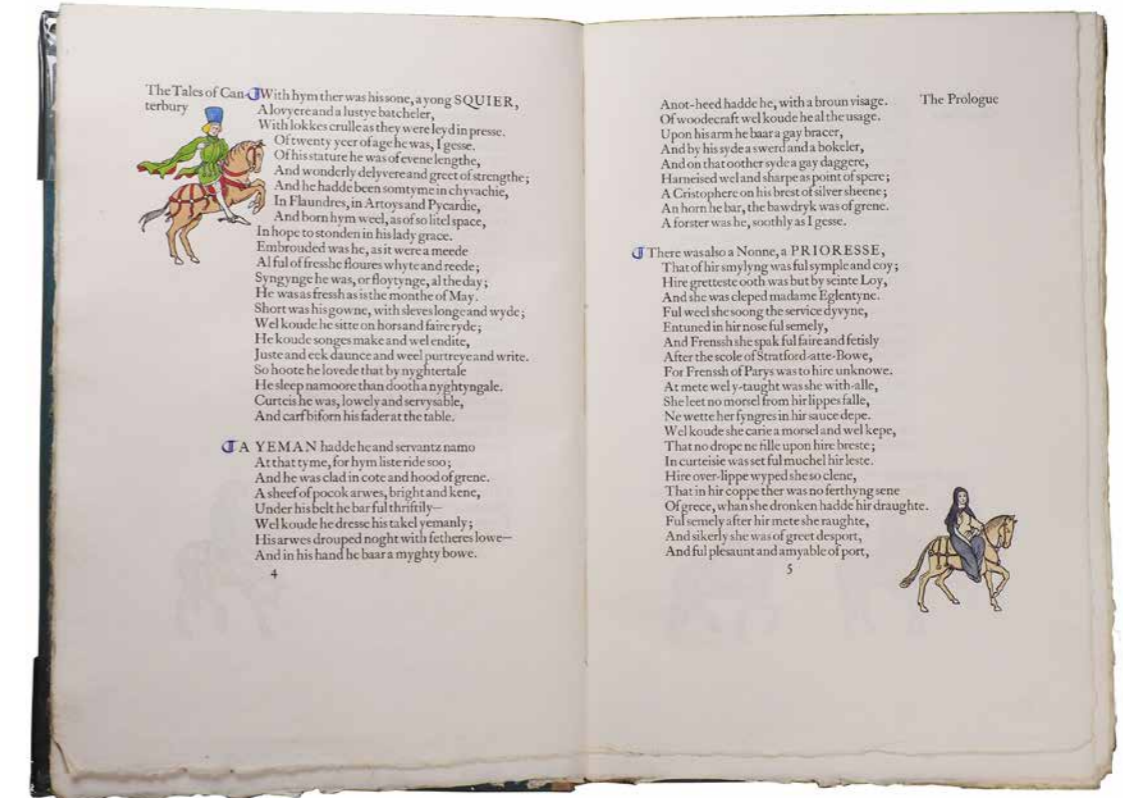 The Tales of Can-
terbury
With hym ther was his sone, a yong SQUIER,
A lovyere and a lustye batcheler,
With lokkes crulle as they were leyd in presse.
Of twenty yeer of age he was, I gesse.
Of his stature he was of evene lengthe,
And wonderly delyvere and greet of strengthe;
And he hadde been somtyme in chyvachie,
In Flaundres, in Artoys and Pycardie,
And born hym weel, as of so litel space,
In hope to stonden in his lady grace.
Embrouded was he, as it were a meede
Al ful of fresshe floures whyte and reede;
Syngynge he was, or floytynge, al the day;
He was as fressh as is the monthe of May.
Short was his gowne, with sleves longe and wyde;
Wel koude he sitte on hors and faire ryde;
He koude songes make and wel endite,
Juste and eek daunce and weel purtreye and write.
So hoote he lovede that by nyghtertale
He sleep namoore than dooth a nyghtyngale.
Curteis he was, lowely and servysable,
And carf biforn his fader at the table.
A YEMAN hadde he and servantz namo
At that tyme, for hym liste ride soo;
And he was clad in cote and hood of grene.
A sheef of pocok arwes, bright and kene,
Under his belt he bar ful thriftily—
Wel koude he dresse his takel yemanly;
His arwes drouped noght with fetheres lowe—
And in his hand he baar a myghty bowe.
4
The Prologue
Anot-heed hadde he, with a broun visage.
Of woodecraft wel koude he al the usage.
Upon his arm he baar a gay bracer,
And by his syde a swerd and a bokeler,
And on that oother syde a gay daggere,
Harneised wel and sharpe as point of spere;
A Cristophere on his brest of silver sheene;
An horn he bar, the bawdryk was of grene.
A forster was he, soothly as I gesse.
There was also a Nonne, a PRIORESSE,
That of hir smylyng was ful symple and coy;
Hire gretteste ooth was but by seinte Loy,
And she was cleped madame Eglentyne.
Ful weel she soong the service dyvyne,
Entuned in hir nose ful semely,
And Frenssh she spak ful faire and fetisly
After the scole of Stratford-atte-Bowe,
For Frenssh of Parys was to hire unknowe.
At mete wel y-taught was she with-alle,
She leet no morsel from hir lippes falle,
Ne wette her fyngres in hir sauce depe.
Wel koude she carie a morsel and wel kepe,
That no drope ne fille upon hire breste;
In curteisie was set ful muchel hir leste.
Hire over-lippe wyped she so clene,
That in hir coppe ther was no ferthyng sene
Of grece, whan she dronken hadde hir draughte.
Ful semely after hir mete she raughte,
And sikerly she was of greet desport,
And ful plesaunt and amyable of port,
5